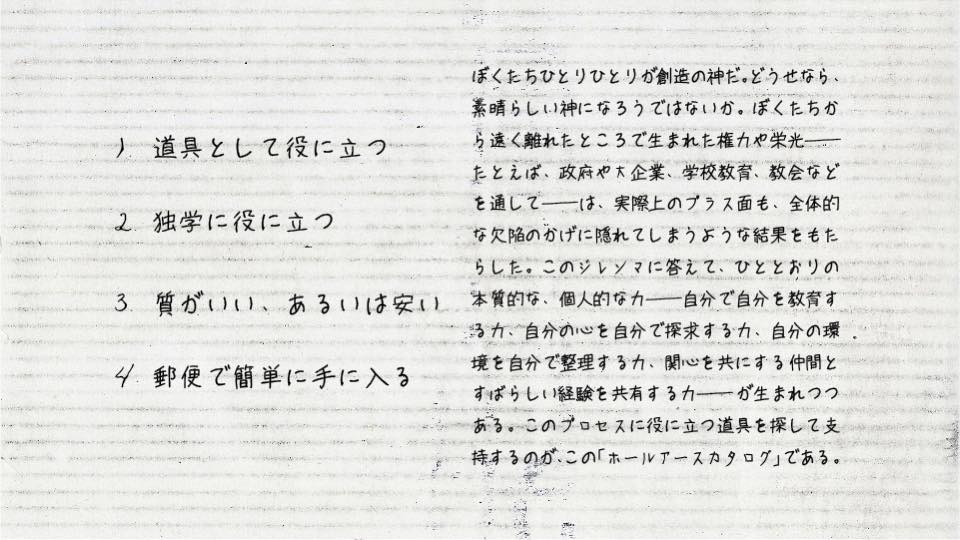 1. 道具として役に立つ
2. 独学に役に立つ
3. 質がいい、あるいは安い
4. 郵便で簡単に手に入る
ぼくたちひとりひとりが創造の神だ。どうせなら、
素晴らしい神になろうではないか。ぼくたちか
ら遠く離れたところで生まれた権力や栄光――
たとえば、政府や大企業、学校教育、教会など
を通して――は、実際上のプラス面も、全体的
な欠陥のかげに隠れてしまうような結果をもた
らした。このジレンマに答えて、ひととおりの
本質的な、個人的な力――自分で自分を教育す
る力、自分の心を自分で探求する力、自分の環
境を自分で整理する力、関心を共にする仲間と
すばらしい経験を共有する力――が生まれつつ
ある。このプロセスに役に立つ道具を探して支
持するのが、この「ホールアースカタログ」である。